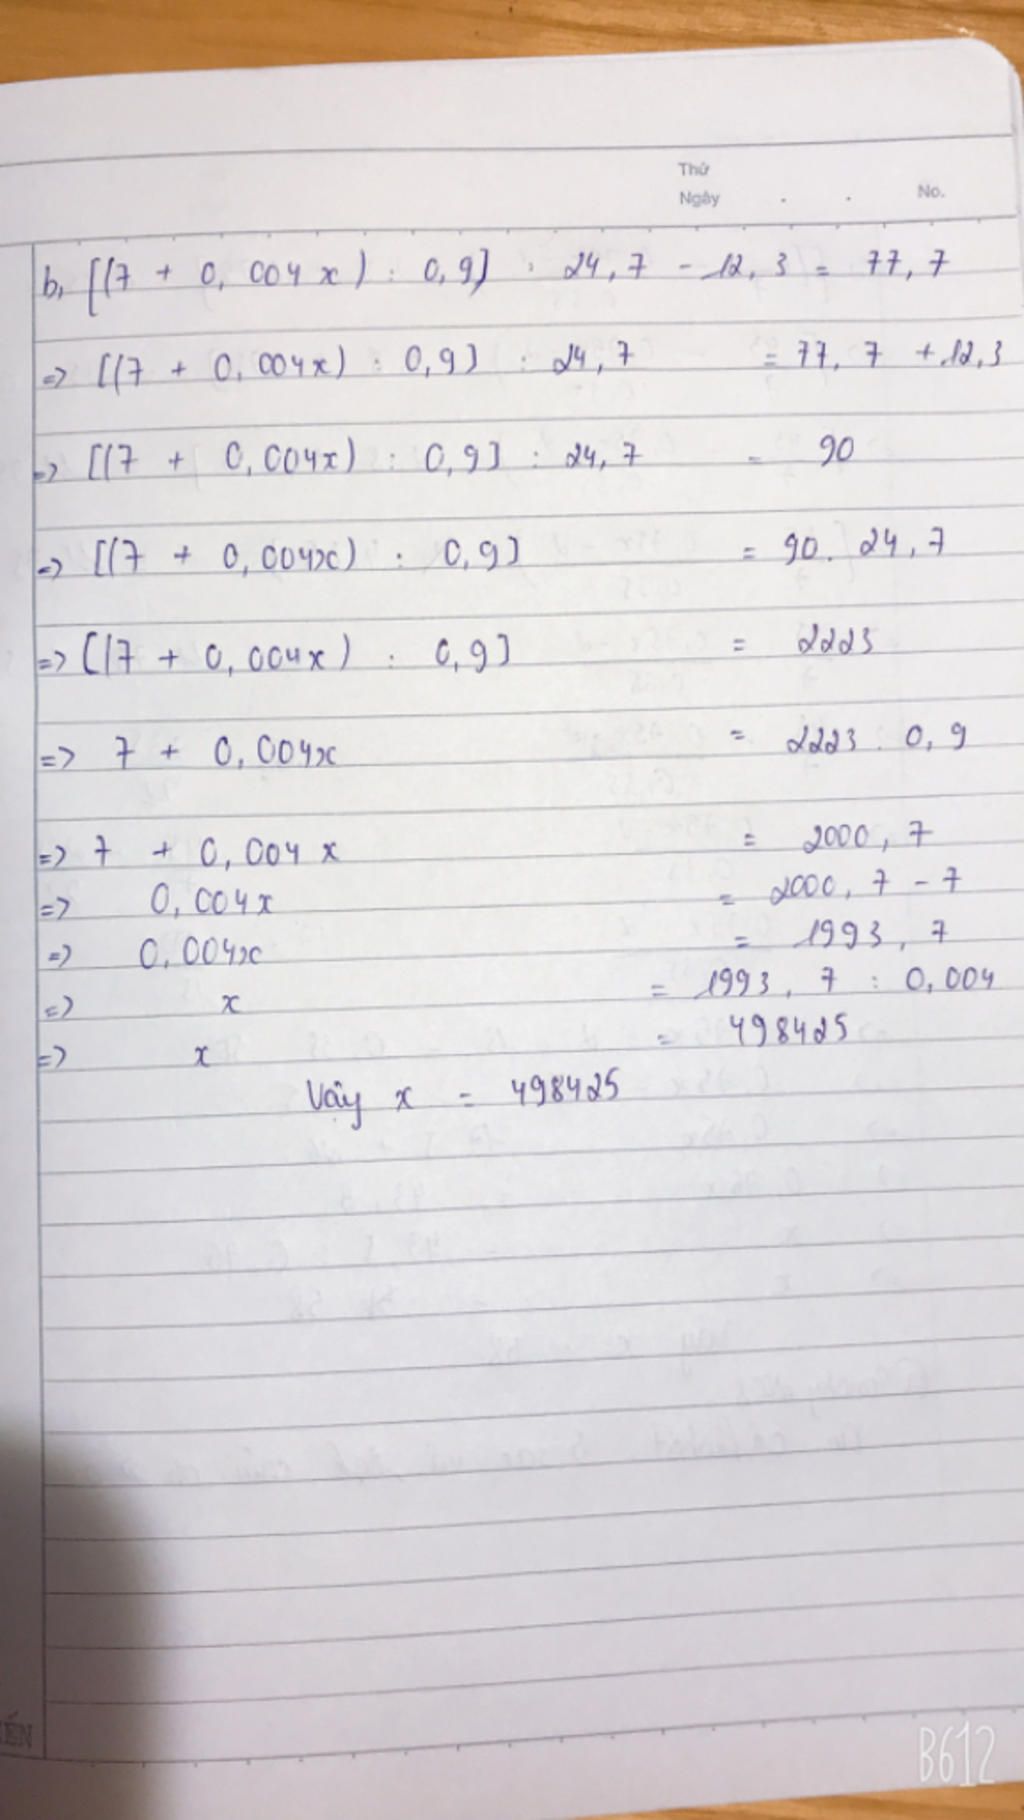 Thứ
Ngày . . No.
b, [(7 + 0,004x) : 0,9] : 24,7 - 12,3 = 77,7
=> [(7 + 0,004x) : 0,9] : 24,7 = 77,7 + 12,3
=> [(7 + 0,004x) : 0,9] : 24,7 = 90
=> [(7 + 0,004x) : 0,9] = 90. 24,7
=> [(7 + 0,004x) : 0,9] = 2223
=> 7 + 0,004x = 2223 . 0,9
=> 7 + 0,004x = 2000,7
=> 0,004x = 2000,7 - 7
=> 0,004x = 1993,7
=> x = 1993,7 : 0,004
=> x = 498425
Vậy x = 498425
B612